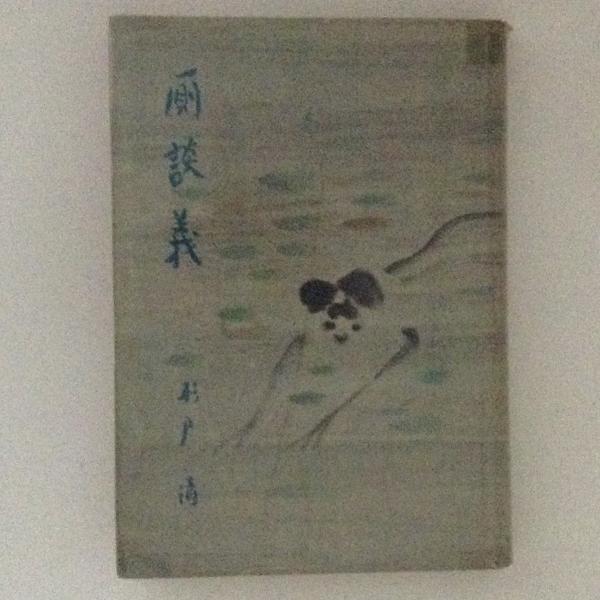 厠談義
杉戸清